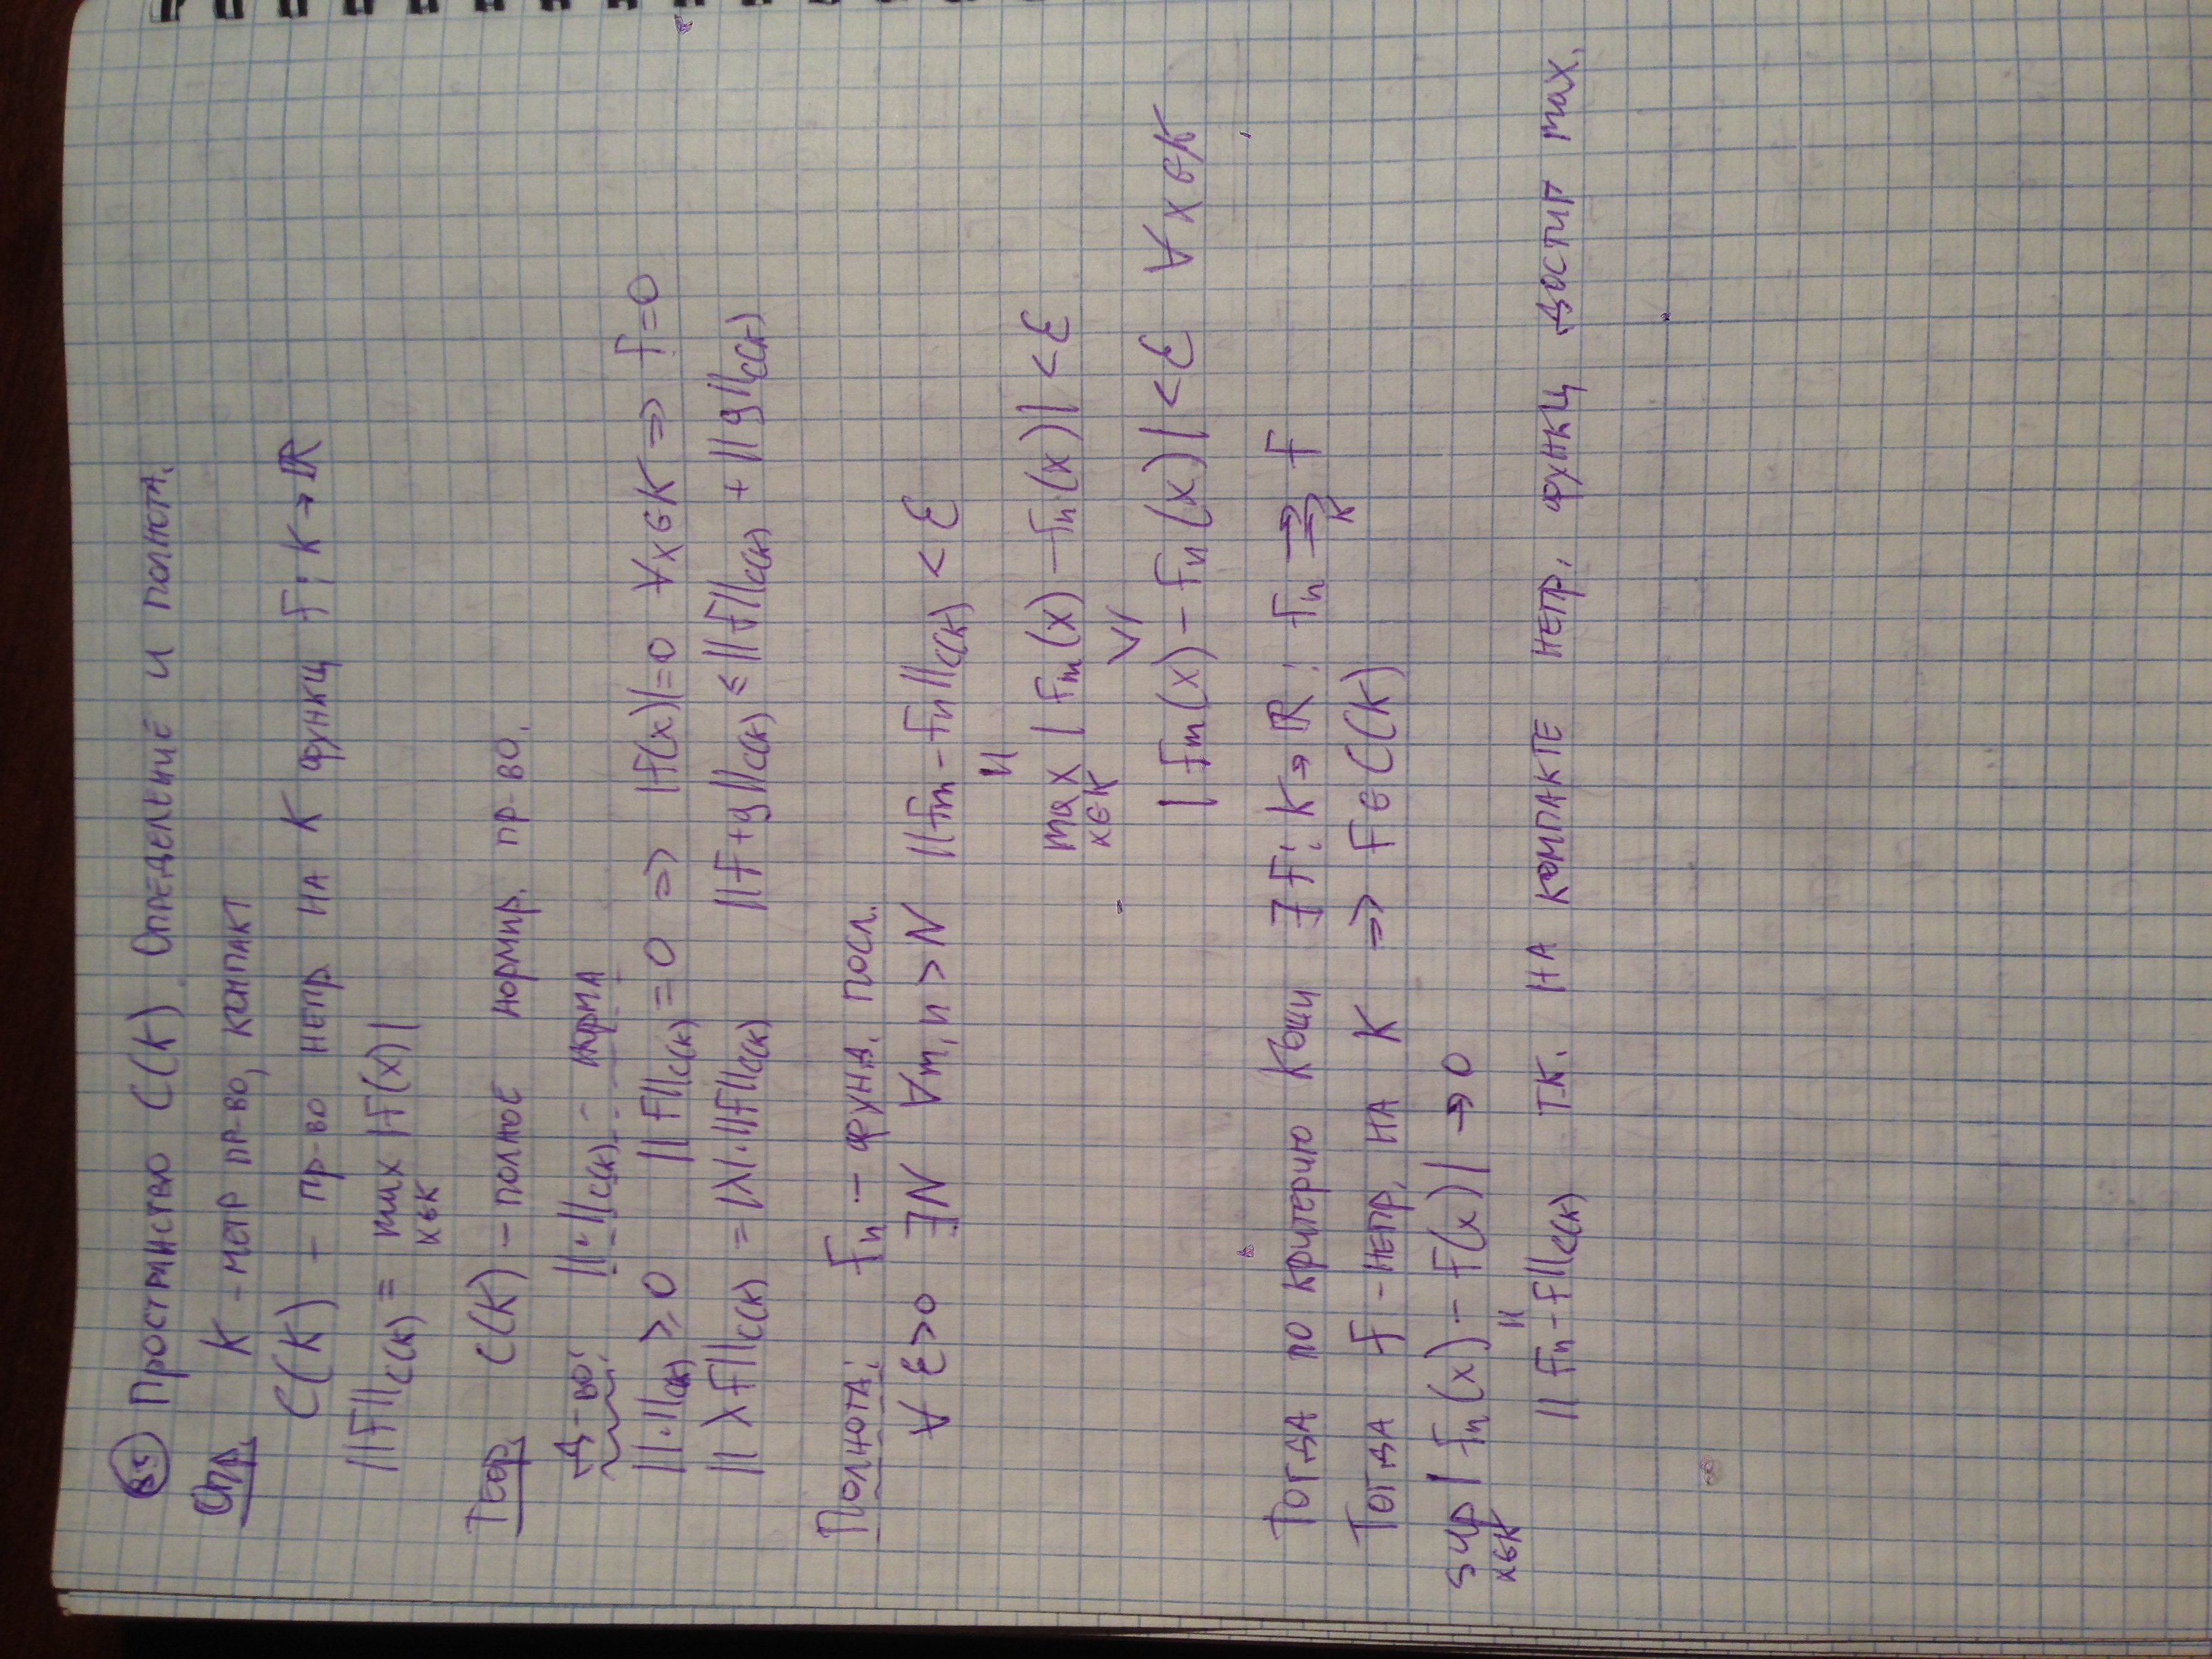 85 Пространство C(K). Определение и полнота.
Опр. K - метр пр-во, компакт
C(K) - пр-во непр. на K функц f: K → ℝ
||f||_{C(K)} = max_{x∈K} |f(x)|
Теор. C(K) - полное нормир. пр-во.
Д-во: ||·||_{C(K)} - норма
||·||_{C(K)} ≥ 0 ||f||_{C(K)} = 0 ⇒ |f(x)|=0 ∀x∈K ⇒ f=0
||λf||_{C(K)} = |λ|·||f||_{C(K)} ||f+g||_{C(K)} ≤ ||f||_{C(K)} + ||g||_{C(K)}
Полнота: f_n - фунд. посл.
∀ε>0 ∃N ∀m,n>N ||f_m - f_n||_{C(K)} < ε
||
max_{x∈K} |f_m(x) - f_n(x)| < ε
∨/
|f_m(x) - f_n(x)| < ε ∀x∈K
Тогда по критерию Коши ∃f: K→ℝ: f_n ⇉_K f
Тогда f - непр. на K ⇒ f∈C(K)
sup_{x∈K} |f_n(x) - f(x)| → 0
||
||f_n - f||_{C(K)} т.к. на компакте непр. функц достиг max.